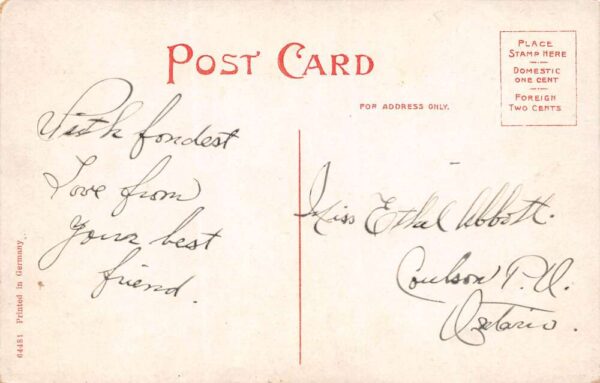 POST CARD
PLACE
STAMP HERE
DOMESTIC
ONE CENT
FOREIGN
TWO CENTS
FOR ADDRESS ONLY.
With fondest
Love from
Your best
friend.
Miss Ethel Abbott.
Coulson P.O.
Ontario.
64481 Printed in Germany